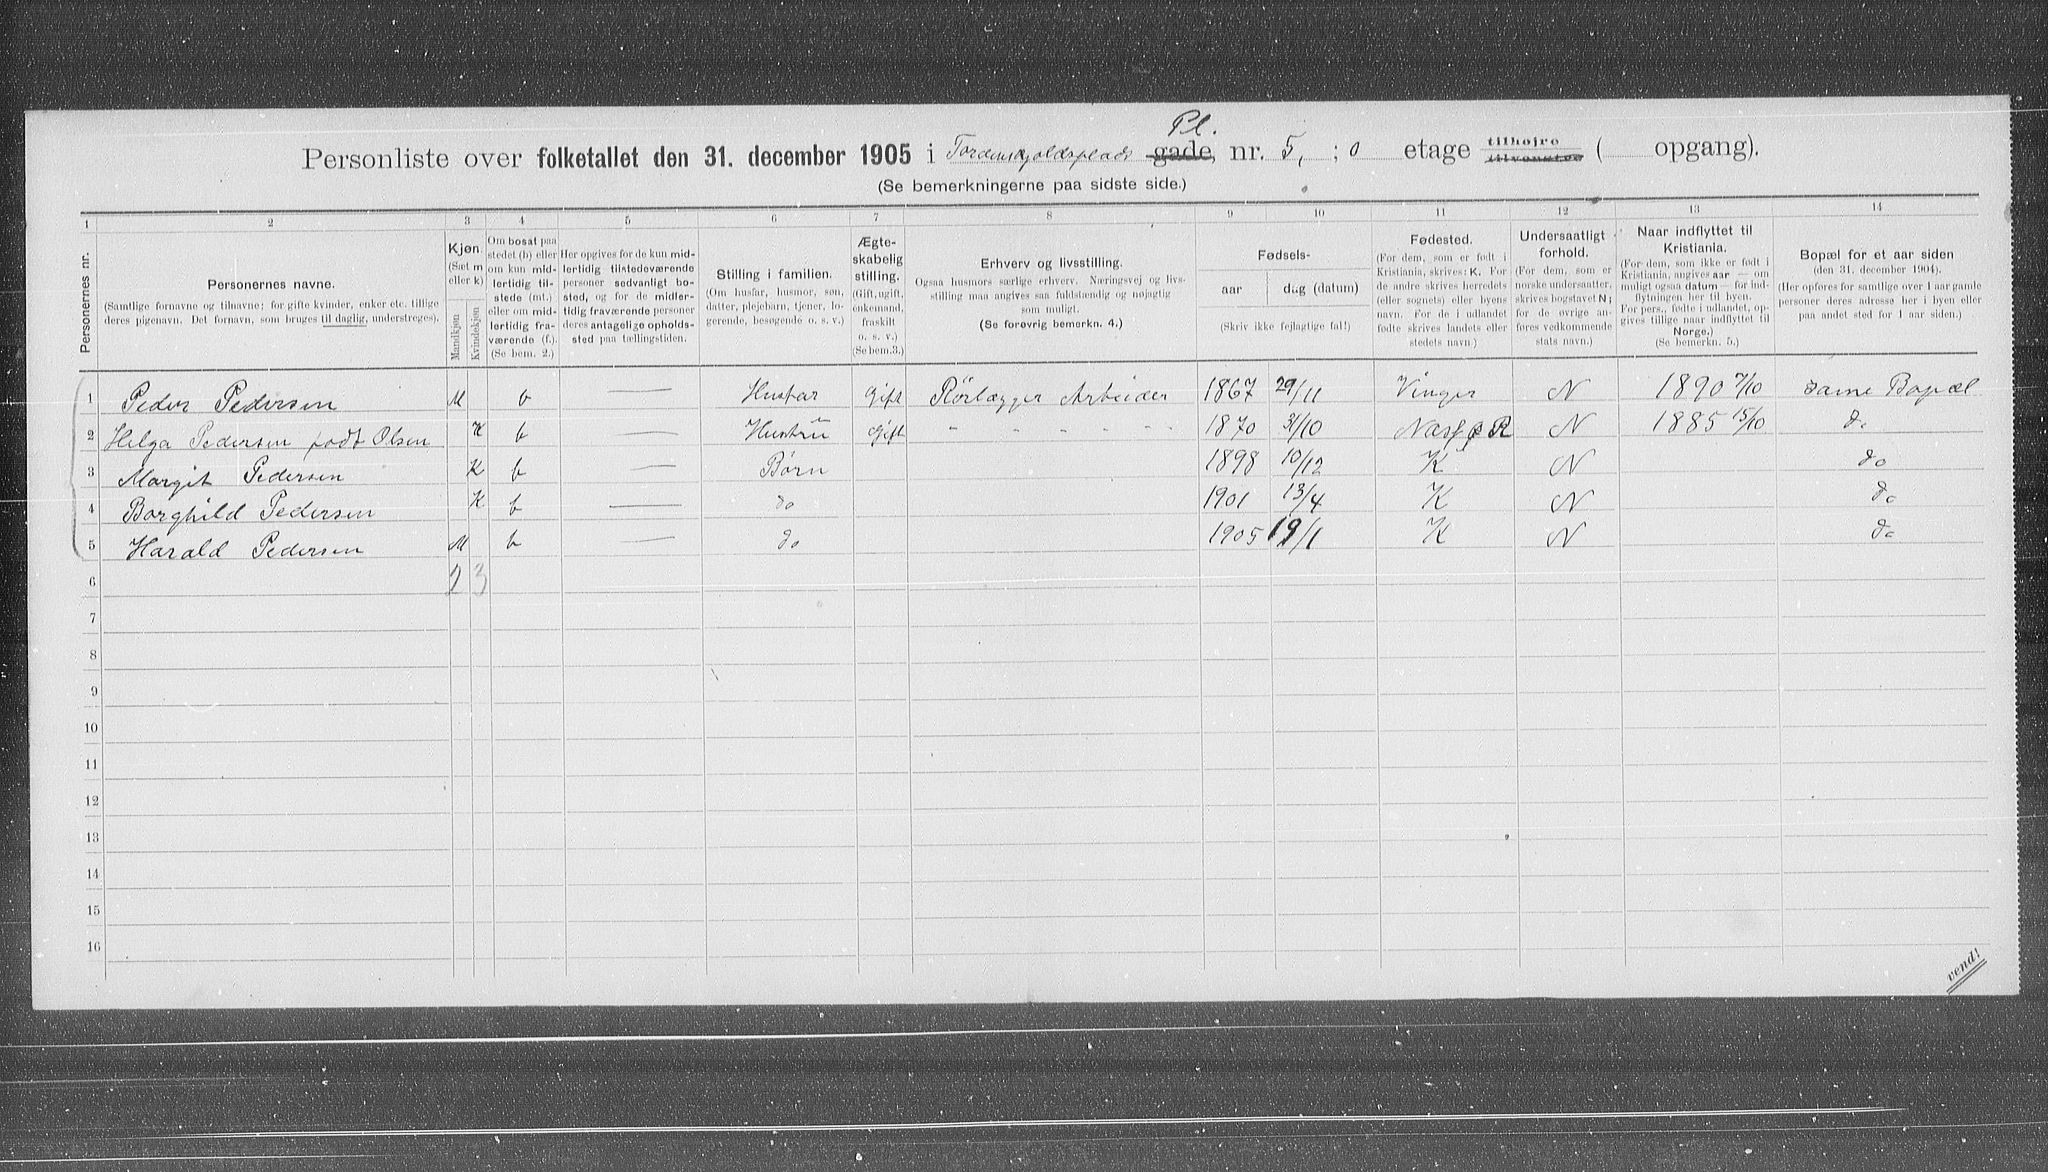 Pl.
Personliste over folketallet den 31. december 1905 i Tordenskjoldsplads gade, nr. 5, ; 0 etage tilhøjre tilvenstre ( opgang).
(Se bemerkningerne paa sidste side.)
1 2 3 4 5 6 7 8 9 10 11 12 13 14
Personernes nr.
Personernes navne.
(Samtlige fornavne og tilnavne; for gifte kvinder, enker etc. tillige
deres pigenavn. Det fornavn, som bruges til daglig, understreges).
Kjøn.
(Sæt m
eller k)
Mandkjøn
Kvindekjøn
Om bosat paa
stedet (b) eller
om kun mid-
lertidig til-
stede (mt.)
eller om mid-
lertidig fra-
værende (f.).
(Se bem. 2.)
Her opgives for de kun mid-
lertidig tilstedeværende
personer sedvanligt bo-
sted, og for de midler-
tidig fraværende personer
deres antagelige opholds-
sted paa tællingstiden.
Stilling i familien.
(Om husfar, husmor, søn,
datter, plejebarn, tjener, lo-
gerende, besøgende o. s. v.)
Ægte-
skabelig
stilling.
(Gift, ugift,
enkemand,
fraskilt
o. s. v.)
(Se bem.3.)
Erhverv og livsstilling.
Ogsaa husmors særlige erhverv. Næringsvej og livs-
stilling maa angives saa fuldstændig og nøjagtig
som muligt.
(Se forøvrig bemerkn. 4.)
Fødsels-
aar
dag (datum)
(Skriv ikke fejlagtige tal!)
Fødested.
(For dem, som er født i
Kristiania, skrives: K. For
de andre skrives herredets
(eller sognets) eller byens
navn. For de i udlandet
fødte skrives landets eller
stedets navn.)
Undersaatligt
forhold.
(For dem, som er
norske undersaatter,
skrives bogstavet N;
for de øvrige an-
føres vedkommende
stats navn.)
Naar indflyttet til
Kristiania.
(For dem, som ikke er født i
Kristiania, angives aar — om
muligt ogsaa datum — for ind-
flytningen her til byen.
For pers., fødte i udlandet, op-
gives tillige naar indflyttet til
Norge.)
(Se bemerkn. 5.)
Bopæl for et aar siden
(den 31. december 1904).
(Her opføres for samtlige over 1 aar gamle
personer deres adresse her i byen eller
paa andet sted for 1 aar siden.)
1 Peder Pedersen M b — Husfar Gift Rörlægger Arbeider 1867 29/11 Vinger N 1890 7/10 same Bopæl
2 Helga Pedersen født Olsen K b — Hustrü Gift " " " " " 1870 31/10 N 1885 15/10 do
3 Margit Pedersen K b — Børn 1898 10/12 K N do
4 Borghild Pedersen K b — do 1901 13/4 K N do
5 Harald Pedersen M b — do 1905 19/1 K N do
6 2 3
7
8
9
10
11
12
13
14
15
16
vend!